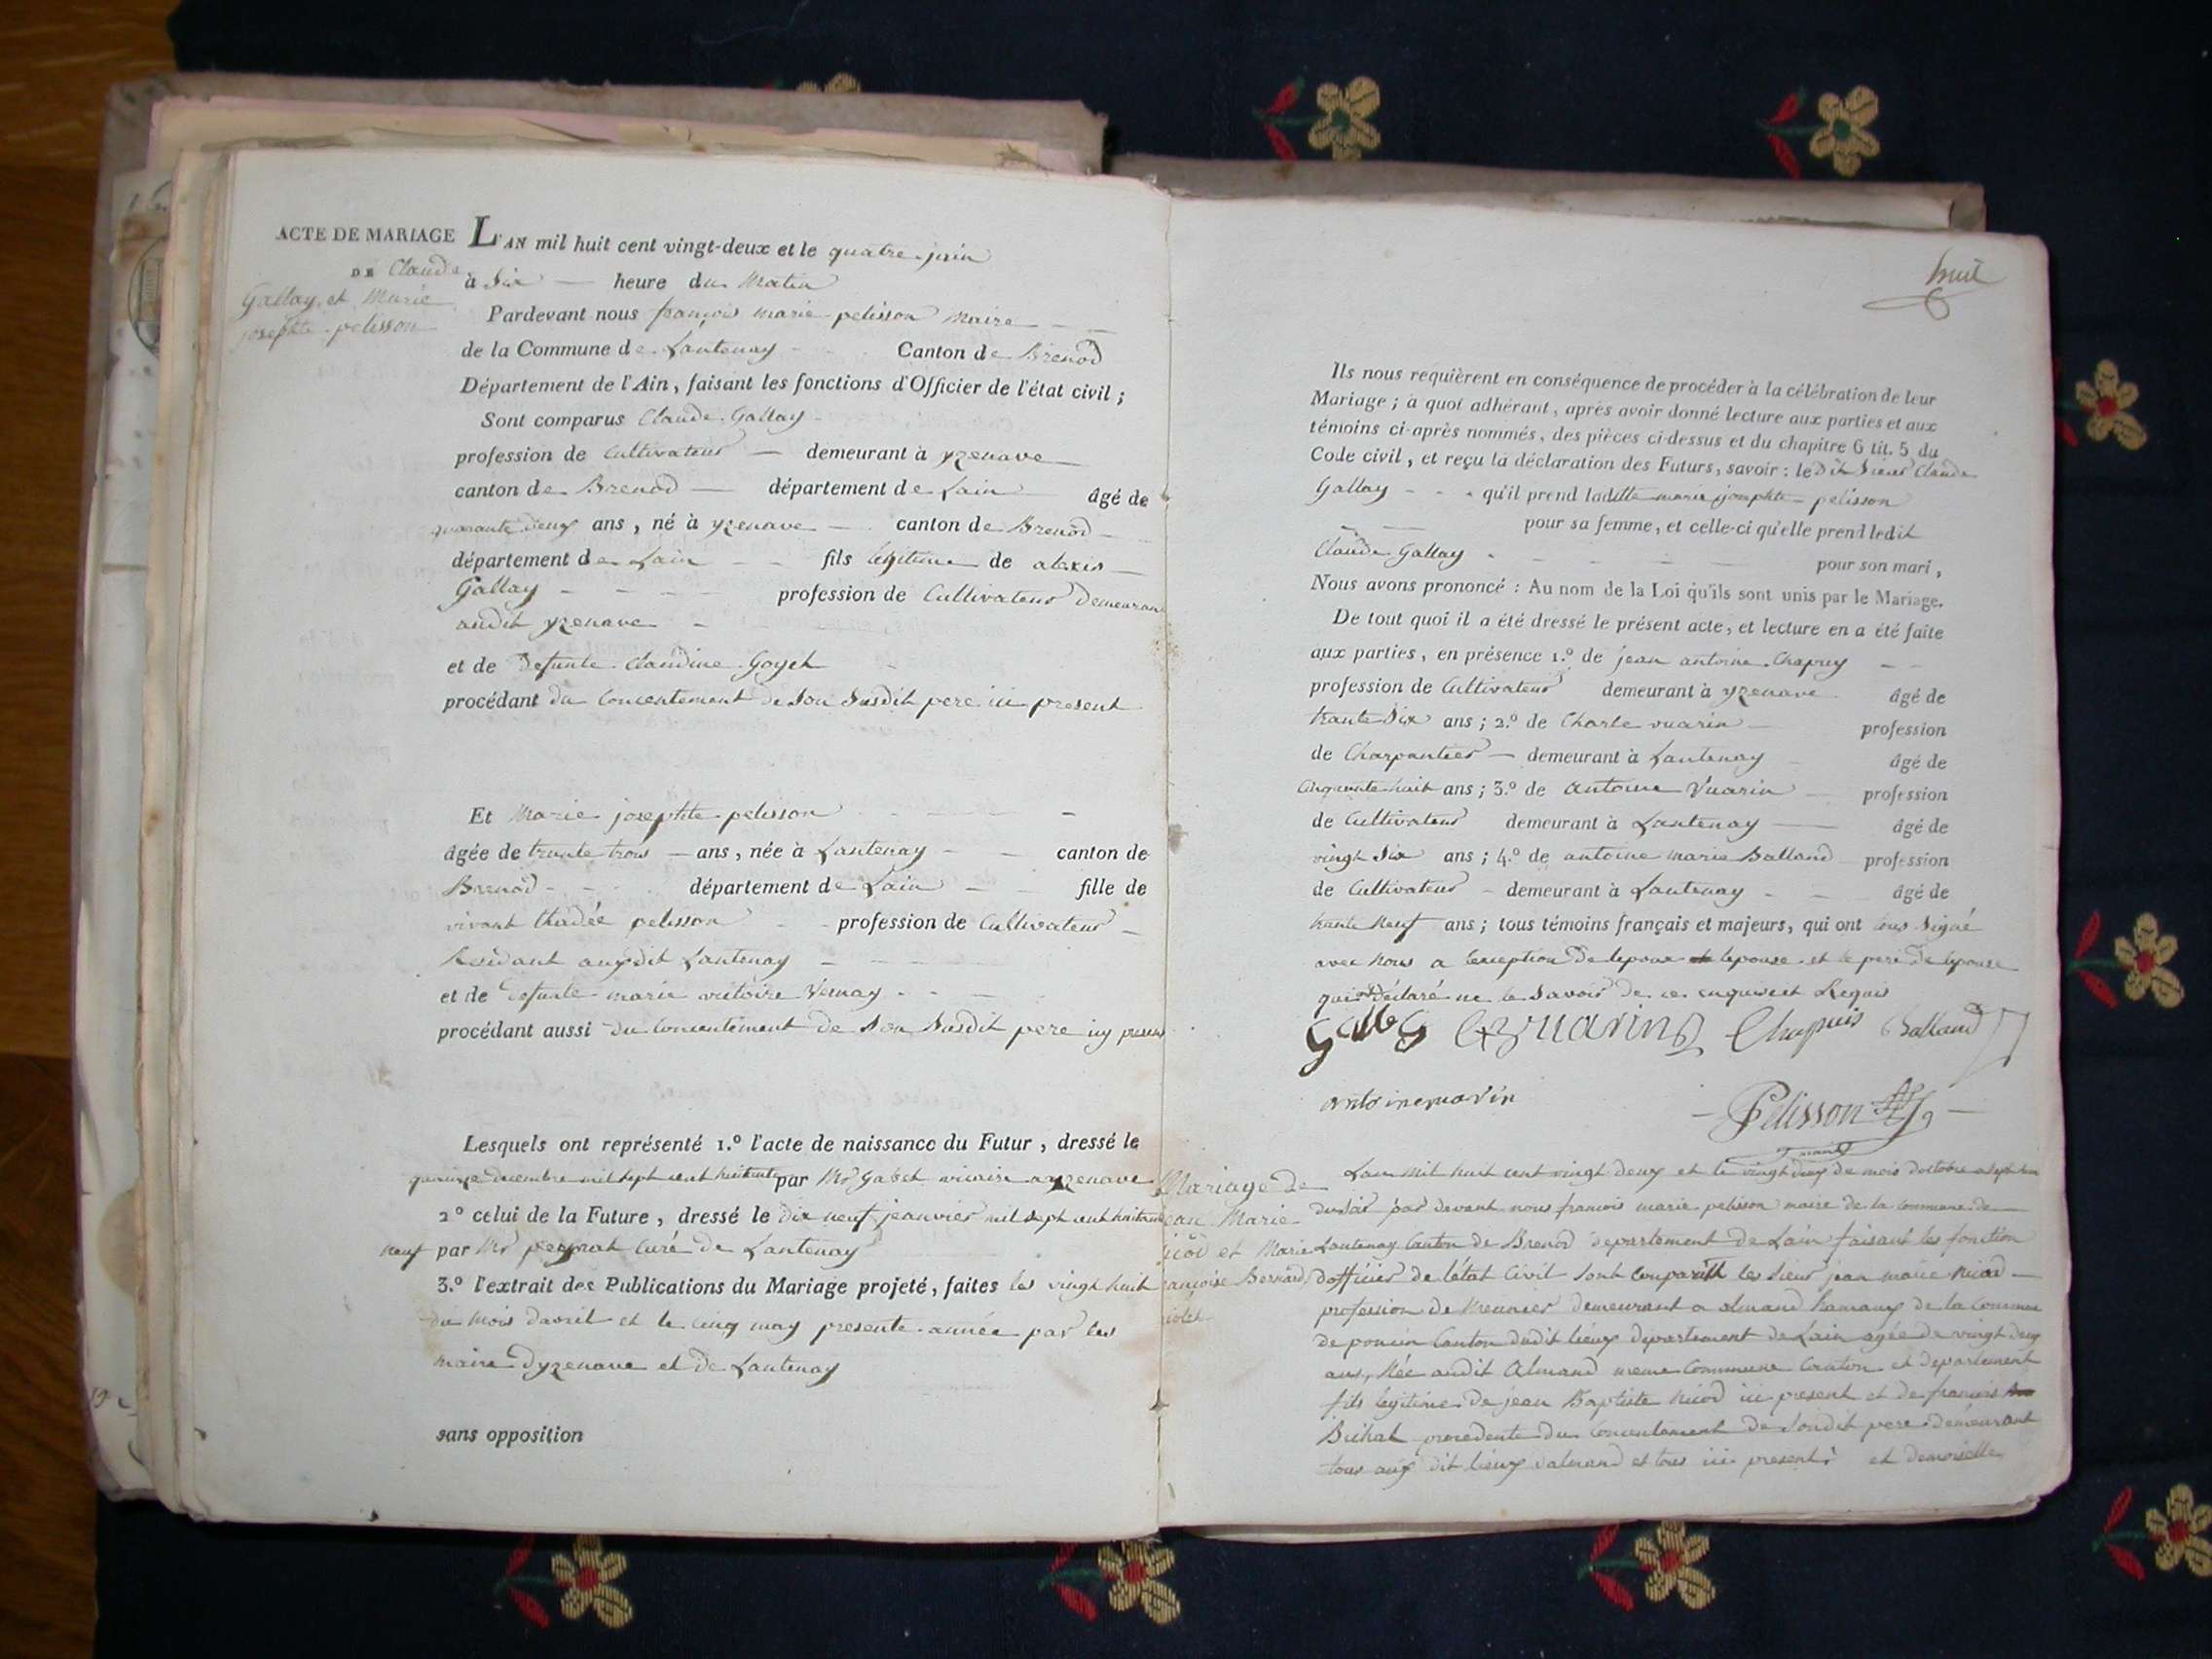 ACTE DE MARIAGE
DE Claude
Gallay et Marie
josephte pelisson
L'AN mil huit cent vingt-deux et le quatre juin
à Six heure du Matin
Pardevant nous françois marie pelisson Maire
de la Commune de Lantenay Canton de Brenod
Département de l'Ain, faisant les fonctions d'Officier de l'état civil ;
Sont comparus Claude Gallay
profession de Cultivateur demeurant à yzenave
canton de Brenod département de Lain âgé de
quarante deux ans, né à yzenave canton de Brenod
département de Lain fils legitime de alexis
Gallay profession de Cultivateur Demeurant
audit yzenave
et de Defunte Claudine Goyet
procédant du Concentement de Son Susdit pere ici present
Et Marie josephte pelisson
âgée de trante trois ans, née à Lantenay canton de
Brenod département de Lain fille de
vivant thadée pelisson profession de Cultivateur
Residant aux dit Lantenay
et de Defunte marie victoire Vernay
procédant aussi du Concentement de Son Susdit pere icy present
Lesquels ont représenté 1.º l'acte de naissance du Futur, dressé le
quinze decembre mil sept cent huitante par Mr Gabet vicaire a yzenave
2º celui de la Future, dressé le dix neuf jeanvier mil sept cent huitante
neuf par Mr curé de Lantenay
3.º l'extrait des Publications du Mariage projeté, faites les vingt huit
du mois davril et le cinq may presente année par les
maire Dyzenave et de Lantenay
sans opposition
huit
Ils nous requièrent en conséquence de procéder à la célébration de leur
Mariage ; à quoi adhérant, après avoir donné lecture aux parties et aux
témoins ci-après nommés, des pièces ci-dessus et du chapitre 6 tit. 5 du
Code civil, et reçu la déclaration des Futurs, savoir : le Dit Sieur Claude
Gallay qu'il prend laditte marie josephte pelisson
pour sa femme, et celle-ci qu'elle prend ledit
Claude Gallay pour son mari,
Nous avons prononcé : Au nom de la Loi qu'ils sont unis par le Mariage.
De tout quoi il a été dressé le présent acte, et lecture en a été faite
aux parties, en présence 1.º de jean antoine Chapuy
profession de Cultivateur demeurant à yzenave âgé de
trante Six ans ; 2.º de Charle vuarin profession
de Charpantier demeurant à Lantenay âgé de
Cinquante huit ans ; 3.º de antoine Vuarin profession
de Cultivateur demeurant à Lantenay âgé de
vingt Six ans ; 4.º de antoine marie Balland profession
de Cultivateur demeurant à Lantenay âgé de
trante Neuf ans ; tous témoins français et majeurs, qui ont tous Signé
avec Nous a lexception De lepoux lepouse et le pere De lepouse
qui ont Déclaré ne le Savoir De ce enquis et Requis
Gallay Vuarin Chapuis Balland
antoinevuarin
Pelisson
maire
Mariage de
jean Marie
Nicod et Marie
françoise Bernard
Lan mil huit cent vingt deux et le vingt deux de mois doctobre a Sept heure
du Soir par devant nous francois marie pelisson maire de la commune de
Lantenay Canton de Brenod departement de Lain faisant les fonction
dofficier de létat Civil Sont comparut les Sieur jean marie Nicod
profession de Meunier demeurant a almand hamaux de la Commune
de poncin Canton dudit lieux departement de Lain agée de vingt deux
ans, Née audit Almand meme Commune Canton et departement
fils legitime de jean Baptiste Nicod ici present et de francois
Bichat procedente du Concentement de Sondit pere demeurant
tous aux dit lieux dalmand et tous ici present ; et demoiselle